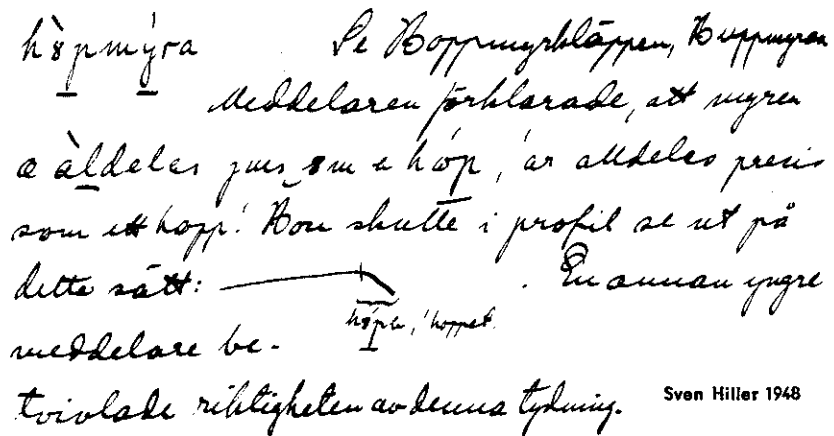 Se Hoppmyrkläppen, Huppmyran
Meddelaren förklarade, att myren
'är alldeles precis
som ett hopp'. Hon skulle i profil se ut på
detta sätt: . En annan yngre
'hoppet'
meddelare be-
tvivlade riktigheten av denna tydning.
Sven Hiller 1948